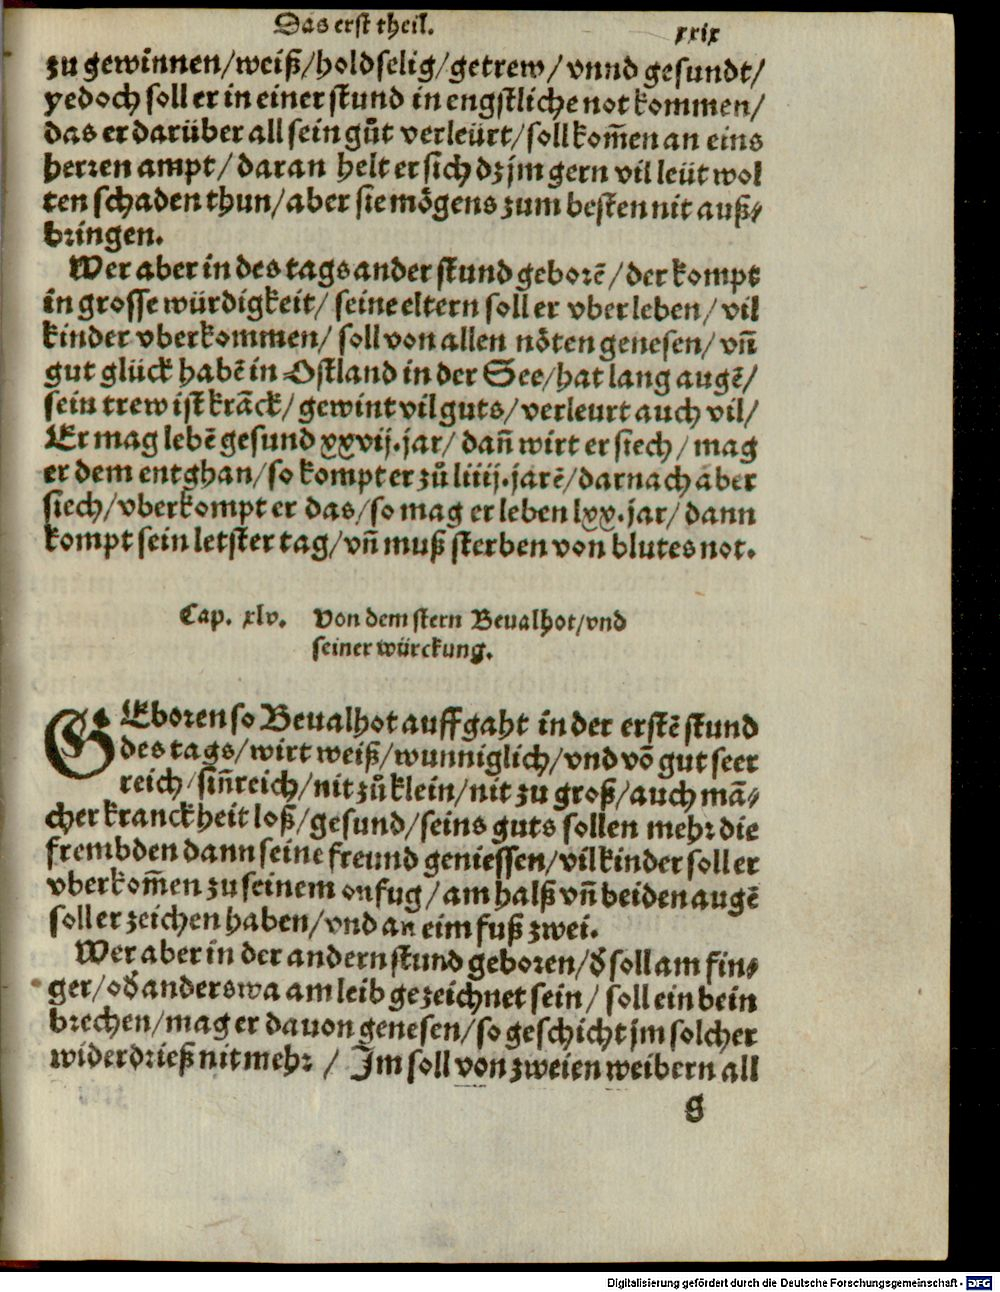 Das erst theil. xxix
zu gewinnen/weiß/holdselig/getrew/vnnd gesundt/
yedoch soll er in einer stund in engstliche not kommen/
das er darüber all sein gůt verleürt/soll kom̃en an eins
herren ampt/daran helt er sich dz jm gern vil leüt wol
ten schaden thun/aber sie mögens zum besten nit auß⸗
bringen.
Wer aber in des tags ander stund geborẽ/der kompt
in grosse würdigkeit/ seine eltern soll er vberleben/vil
kinder vberkommen/ soll von allen nöten genesen/vñ
gut glück habẽ in Ostland in der See/hat lang augẽ/
sein trew ist krãck/gewint vil guts/verleurt auch vil/
Er mag lebẽ gesund xxvij.jar/ dañ wirt er siech/mag
er dem entghan/so kompt er zů liiij.jarẽ/darnach aber
siech/vberkompt er das/so mag er leben lxx.jar/dann
kompt sein letster tag/vñ muß sterben von blutes not.
Cap. xlv. Von dem stern Beualhot/vnd
seiner würckung.
GEboren so Beualhot auffgaht in der erstẽ stund
des tags/wirt weiß/wunniglich/vnd võ gut seer
reich/siñreich/nit zů klein/nit zu groß/auch mã⸗
cher kranckheit loß/gesund/seins guts sollen mehr die
frembden dann seine freund geniessen/vil kinder soll er
vberkom̃en zu seinem onfug/am halß vñ beiden augẽ
soll er zeichen haben/vnd an eim fuß zwei.
Wer aber in der andern stund geboren/d̕ soll am fin⸗
ger/od̕ anderswa am leib gezeichnet sein/ soll ein bein
brechen/mag er dauon genesen/so geschicht jm solcher
widerdrieß nit mehr/ Jm soll von zweien weibern all
g
Digitalisierung gefördert durch die Deutsche Forschungsgemeinschaft - DFG